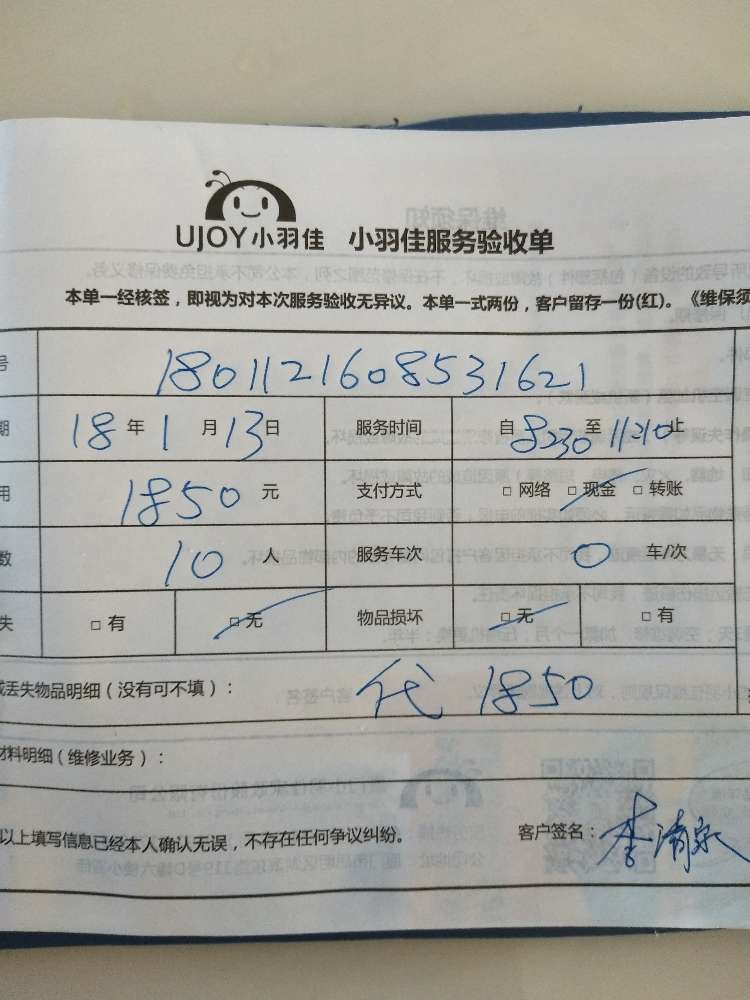 UJOY小羽佳 小羽佳服务验收单
本单一经核签，即视为对本次服务验收无异议。本单一式两份，客户留存一份(红)。《维保须
号 1801121608531621
期 18年1月13日 服务时间 自8:30至11:30止
用 1850元 支付方式 □网络 □现金 □转账
数 10人 服务车次 0车/次
失 □有 □无 物品损坏 □无 □有
或丢失物品明细（没有可不填）： 代 1850
材料明细（维修业务）：
以上填写信息已经本人确认无误，不存在任何争议纠纷。 客户签名：李清